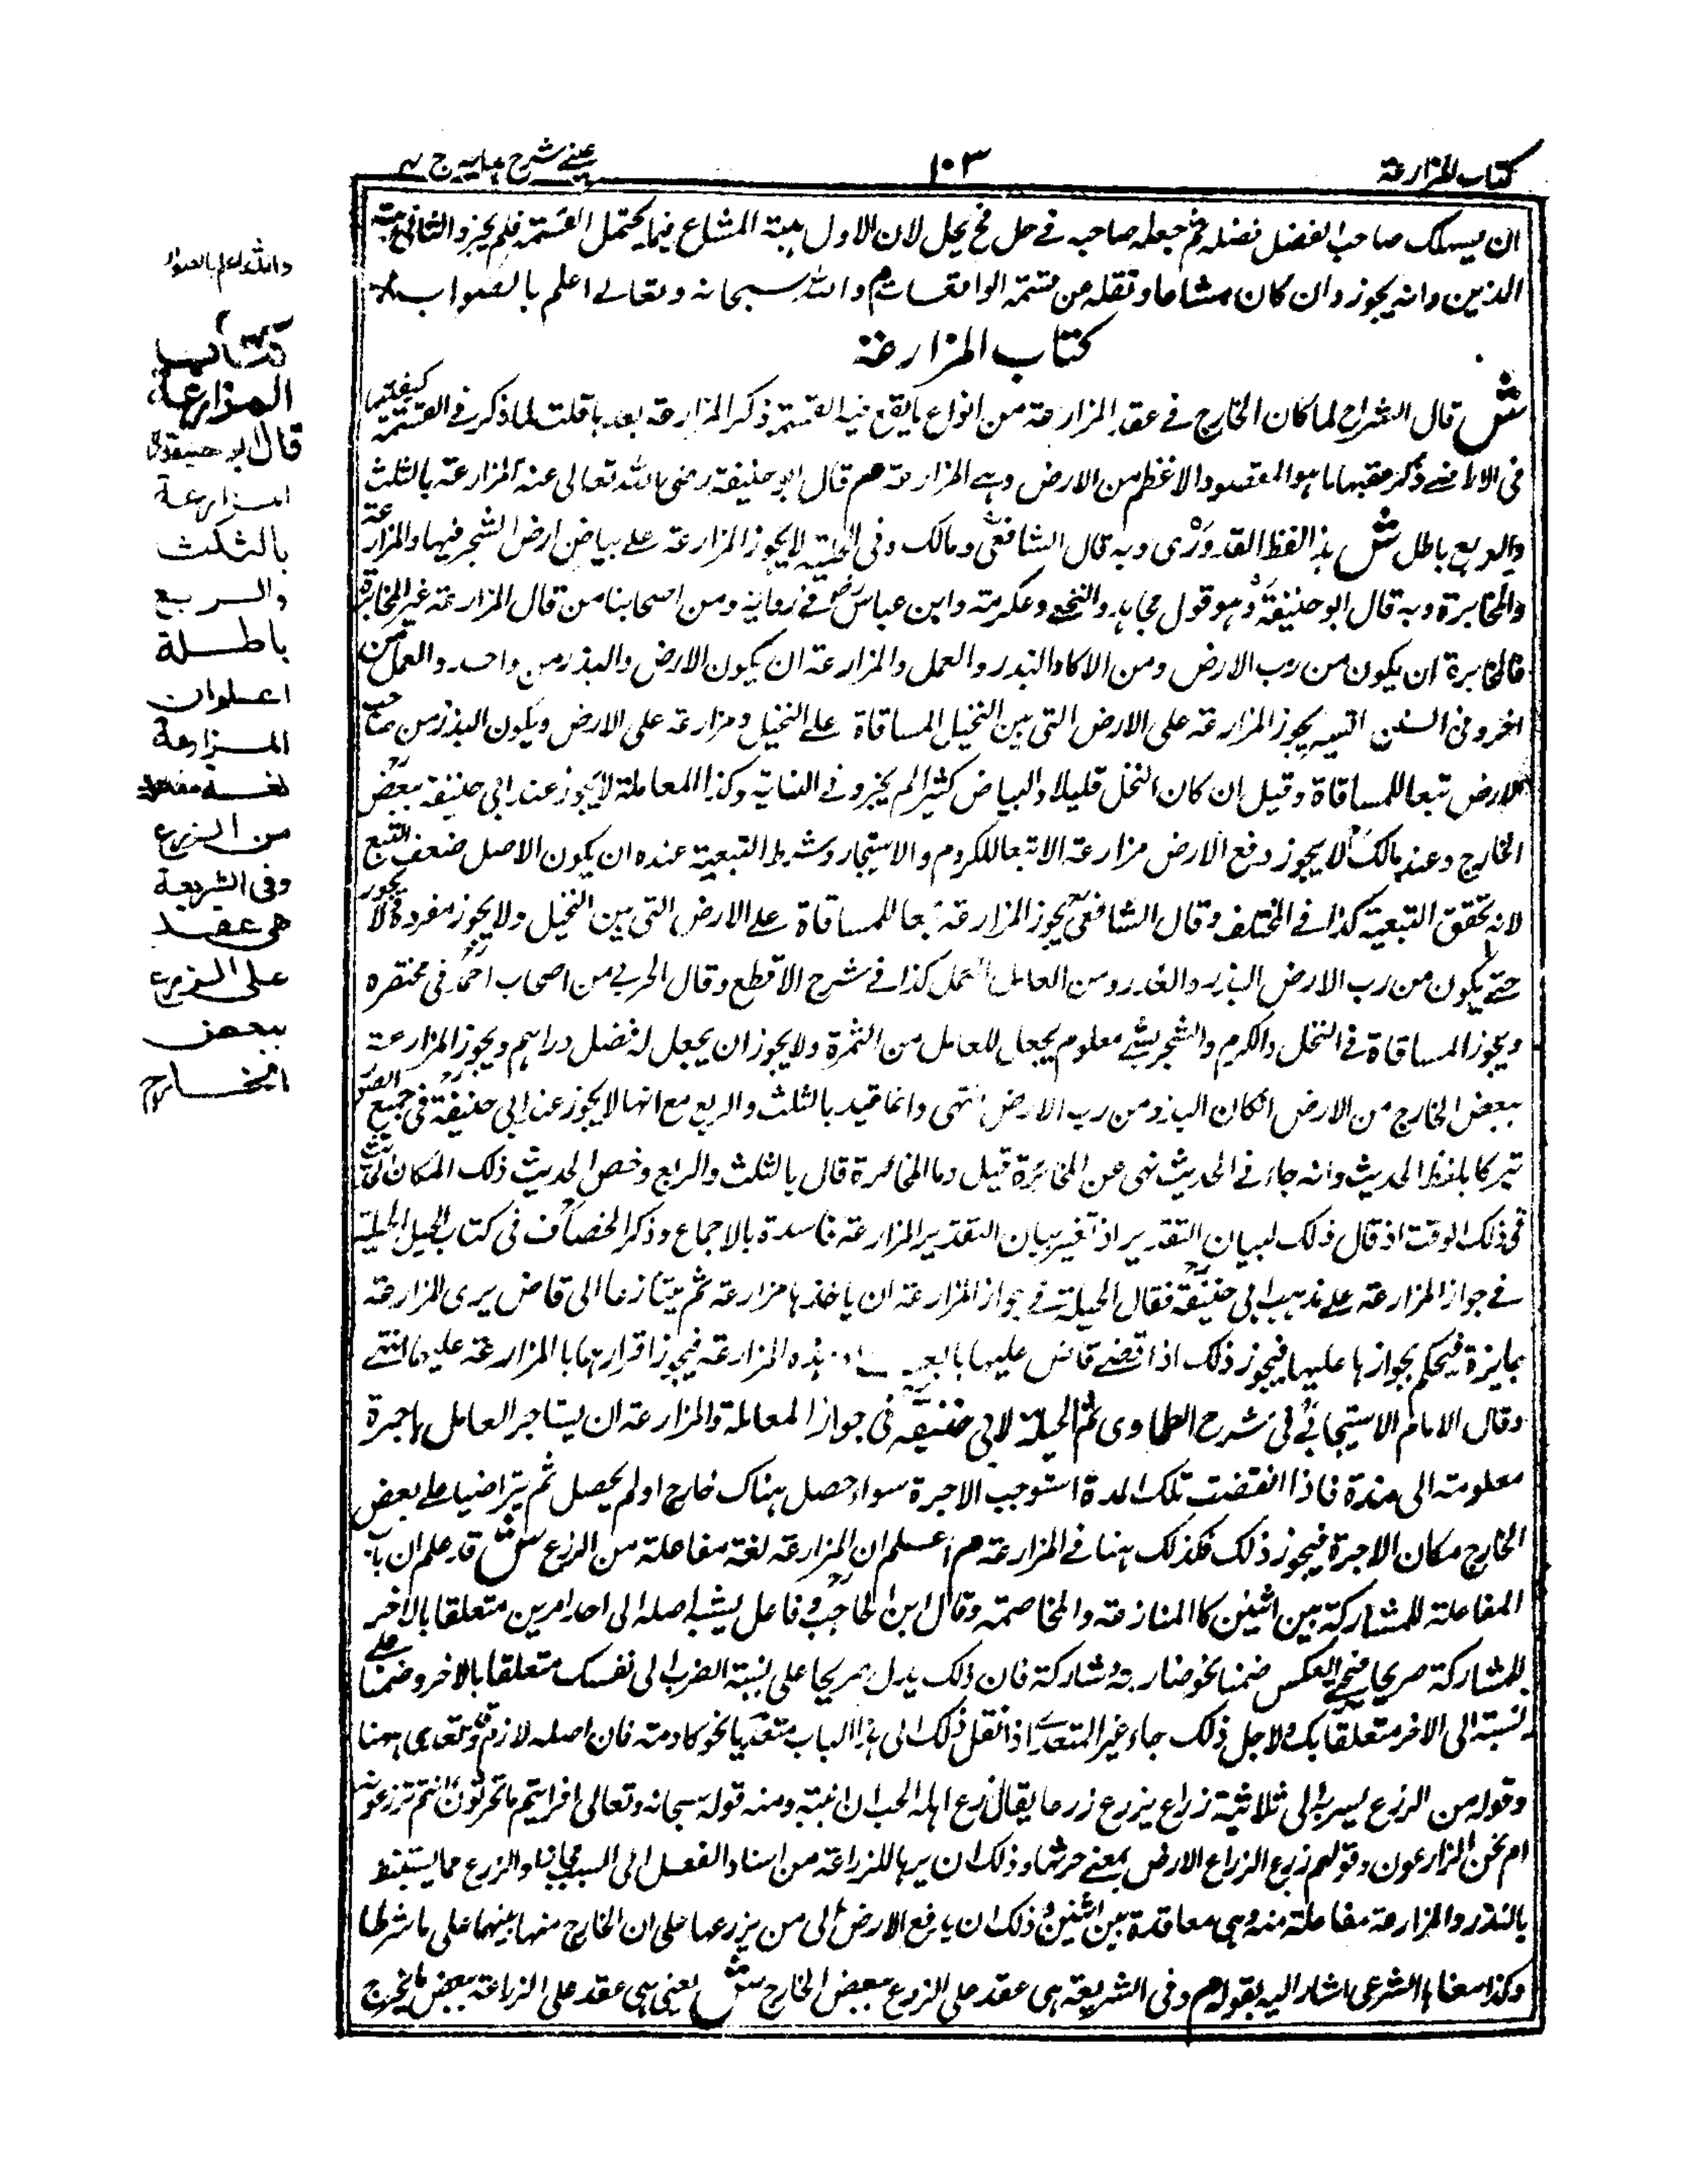 كتاب المزارعة
١٠٣
عيني شرح هدايه ج ٤
ان يستهلك صاحب الفضل فضله ثم جعله صاحبه في حل فح يحل لان الاول هبة المشاع فيما يحتمل القسمة فلم يجز والثاني هبة
الدين وانه يجوز وان كان مشاعا ونقله من تتمة الواقعات م والله سبحانه وتعالى اعلم بالصواب
كتاب المزارعة
ش قال الشراح لما كان الخارج في عقد المزارعة من انواع ما يقع فيه القسمة ذكر المزارعة بعدها قلت لما ذكر في القسمة كيفيتها
في الاراضي ذكر عقبها ما هو المقصود الاعظم من الارض وهي المزارعة م قال ابو حنيفة رضي الله تعالى عنه المزارعة بالثلث
والربع باطل ش هذا لفظ القدوري وبه قال الشافعي ومالك وفي الحلية لا يجوز المزارعة على بياض ارض الشجر فيها والمزارعة
والمخابرة وبه قال ابو حنيفة وهو قول مجاهد والنخعي وعكرمة وابن عباس في رواية ومن اصحابنا من قال المزارعة غير المخابرة
فالمخابرة ان يكون من رب الارض ومن الاكار البذر والعمل والمزارعة ان يكون الارض والبذر من واحد والعمل من
اخر وفي السنن يجوز المزارعة على الارض التي بين النخيل المساقاة على النخيل ومزارعة على الارض ويكون البذر من صاحب
الارض تبعا للمساقاة وقيل ان كان النخل قليلا والبياض كثيرا لم يجز وفي الغاية وكذا المعاملة لا يجوز عند ابي حنيفة ببعض
الخارج وعند مالك لا يجوز دفع الارض مزارعة الا تبعا للكروم والاشجار وشرط التبعية عنده ان يكون الاصل ضعف التبع
لانه تحقق التبعية كذا في المختلف وقال الشافعي يجوز المزارعة تبعا للمساقاة على الارض التي بين النخيل ولا يجوز مفردة ولا يجوز
حتى يكون من رب الارض البذر والغدر ومن العامل العمل كذا في شرح الاقطع وقال الخرقي من اصحاب احمد في مختصره
ويجوز المساقاة في النخل والكرم والشجر بشئ معلوم يجعل للعامل من الثمرة ولا يجوز ان يجعل له فضل دراهم ويجوز المزارعة
ببعض الخارج من الارض اذا كان البذر من رب الارض انتهى وانما قيد بالثلث والربع مع انها لا يجوز عند ابي حنيفة في جميع الصور
تبركا بلفظ الحديث وانه جاء في الحديث نهى عن المخابرة قيل وما المخابرة قال بالثلث والربع وخص الحديث ذلك المكان
في ذلك الوقت اذ قال ذلك لبيان التقدير اذ بغير بيان التقدير المزارعة فاسدة بالاجماع وذكر الخصاف في كتاب الحيل الحيلة
في جواز المزارعة على مذهب ابي حنيفة فقال الحيلة في جواز المزارعة ان ياخذها مزارعة ثم يتنازعا الى قاض يرى المزارعة
جايزة فيحكم بجوازها عليها فيجوز ذلك اذا قضى قاض عليها هذه المزارعة فيجوز اقرارهما بالمزارعة عليهما انتهى
وقال الامام الاسبيجابي في شرح الطحاوي ثم الحيلة لابي حنيفة في جواز المعاملة والمزارعة ان يستاجر العامل باجرة
معلومة الى مدة فاذا انقضت تلك المدة استوجب الاجرة سواء حصل هناك خارج او لم يحصل ثم يتراضيا على بعض
الخارج مكان الاجرة فيجوز ذلك فكذلك هنا في المزارعة م اعلم ان المزارعة لغة مفاعلة من الزرع ش قد علم ان باب
المفاعلة للمشاركة بين اثنين كالمنازعة والمخاصمة وقال ابن الحاجب وفاعل ينسب اصله الى احد امرين متعلقا بالاخر
للمشاركة صريحا فيجئ العكس ضمنا نحو ضاربته وشاركته فان ذلك يدل صريحا على نسبة الضرب الى نفسك متعلقا بالاخر وضمنا على
نسبته الى الاخر متعلقا بك ولاجل ذلك جاء غير المتعدي اذا نقل ذلك الى هذا الباب متعديا نحو كادمته فان اصله لازم وتعدى ههنا
وقوله من الزرع يسير به الى ثلاثية زراع يزرع زرعا يقال زرع الله الحب اى انبته ومنه قوله سبحانه وتعالى افرايتم ما تحرثون اانتم تزرعونه
ام نحن الزارعون وقولهم زرع الزراع الارض بمعنى حرثها وذلك ان يريها للزراعة من اسناد الفعل الى السبب مجازا والزرع مما يستنبط
بالبذر والمزارعة مفاعلة منه وهي معاقدة بين اثنين وذلك ان يدفع الارض الى من يزرعها على ان الخارج منها بينهما على ما شرطا
وكذا معناها الشرعي اشار اليه بقوله م وفي الشريعة هي عقد على الزرع ببعض الخارج ش يعني هي عقد على الزراعة ببعض ما يخرج
والله اعلم بالصواب
كتاب
المزارعة
قال ابو حنيفة
المزارعة
بالثلث
والربع
باطلة
اعلم ان
المزارعة
لغة مفاعلة
من الزرع
وفي الشريعة
هي عقد
على الزرع
ببعض
الخارج